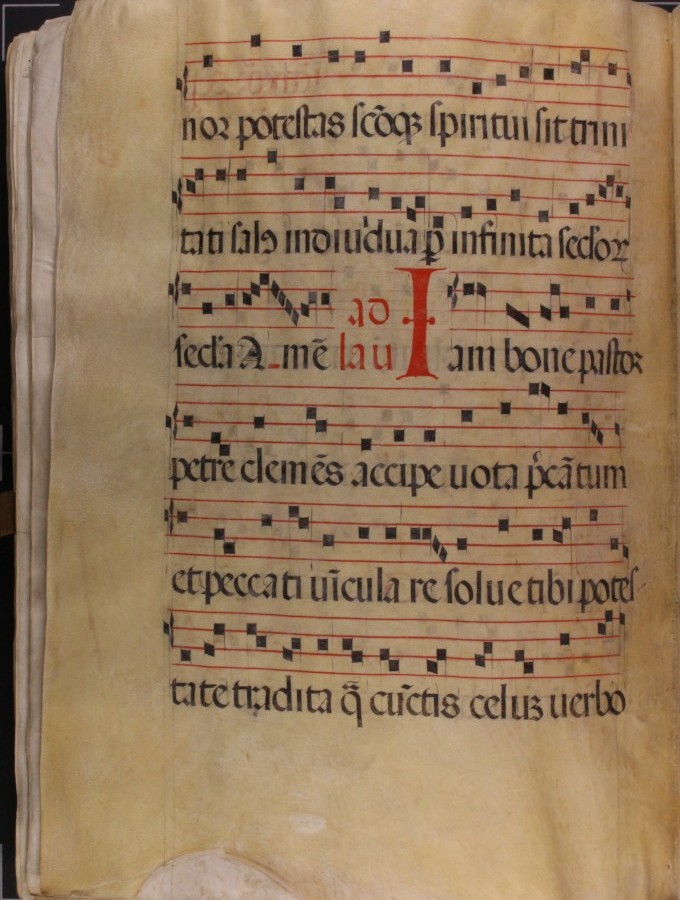 nor potestas sc̄oqꝫ spiritui sit trini
tati salꝰ indiuidua ꝑ infinita sc̄lor
sc̄la Amē ad lau Iam bone pastor
petre clemēs accipe uota p̄cātum
et peccati uīcula resolue tibi potes
tate tradita q̄ cūctis celuꝫ uerbo